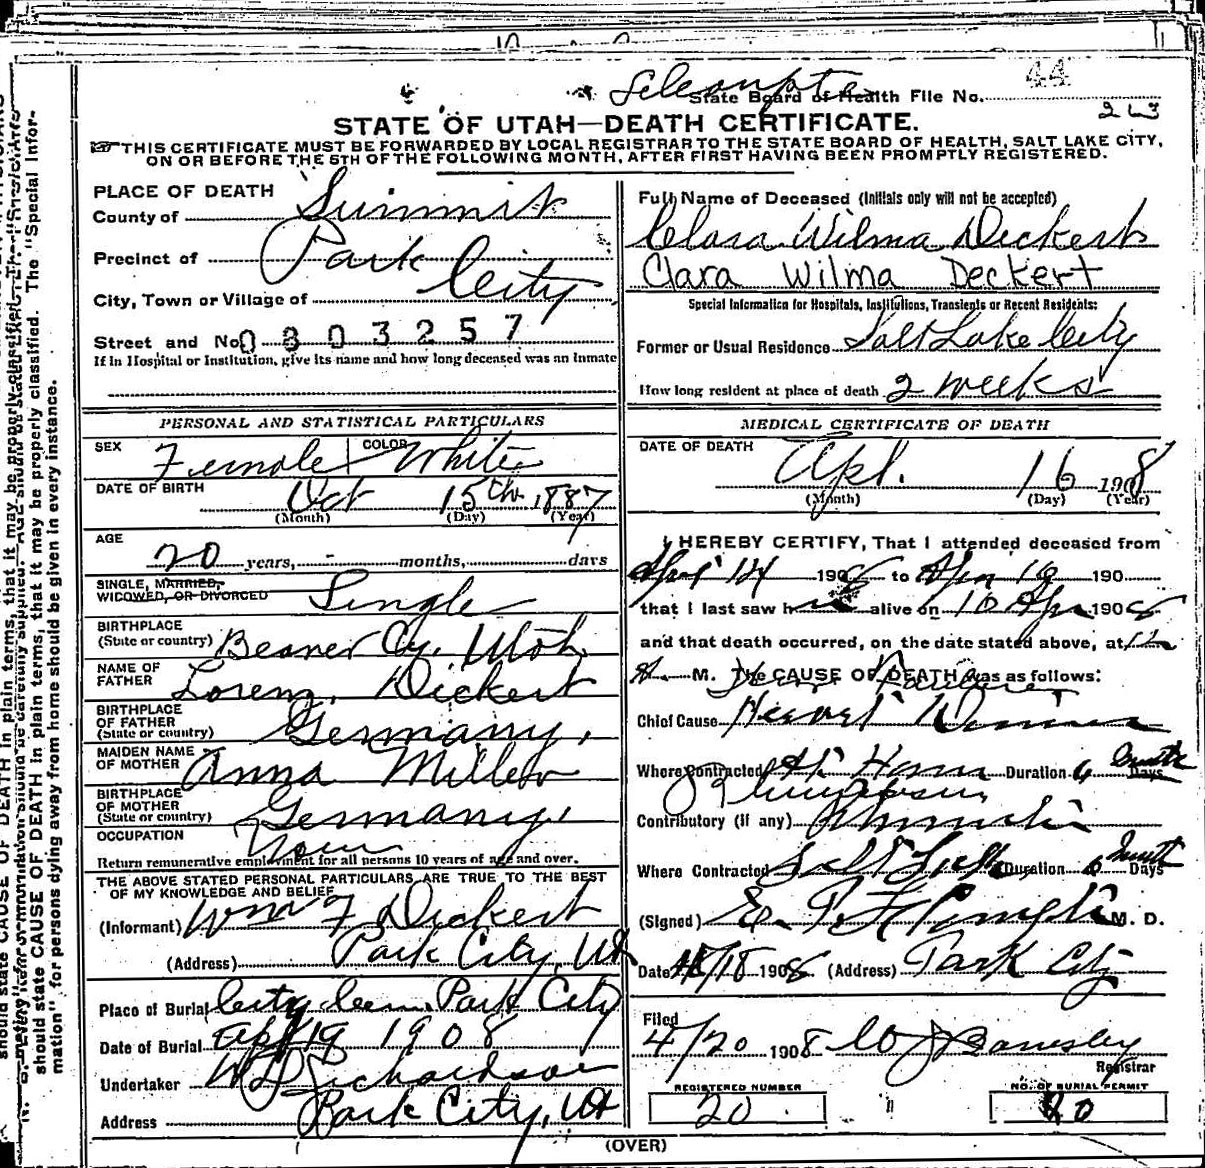 44
State Board of Health File No.
263
STATE OF UTAH—DEATH CERTIFICATE.
THIS CERTIFICATE MUST BE FORWARDED BY LOCAL REGISTRAR TO THE STATE BOARD OF HEALTH, SALT LAKE CITY,
ON OR BEFORE THE 5TH OF THE FOLLOWING MONTH, AFTER FIRST HAVING BEEN PROMPTLY REGISTERED.
PLACE OF DEATH
County of Summit
Precinct of Park City
City, Town or Village of
Street and No. 0803257
If in Hospital or Institution, give its name and how long deceased was an inmate
PERSONAL AND STATISTICAL PARTICULARS
SEX Female COLOR White
DATE OF BIRTH Oct 15th 1887
(Month) (Day) (Year)
AGE
20 years, - months, days
SINGLE, MARRIED,
WIDOWED, OR DIVORCED Single
BIRTHPLACE
(State or country) Beaver Cy. Utah.
NAME OF
FATHER Lorenz Dickert
BIRTHPLACE
OF FATHER
(State or country) Germany,
MAIDEN NAME
OF MOTHER Anna Miller
BIRTHPLACE
OF MOTHER
(State or country) Germany,
OCCUPATION
Return remunerative employment for all persons 10 years of age and over.
THE ABOVE STATED PERSONAL PARTICULARS ARE TRUE TO THE BEST
OF MY KNOWLEDGE AND BELIEF
(Informant) Wm F Dickert
(Address) Park City, Ut
Place of Burial City Cem. Park City
Date of Burial Apl 19 1908
Undertaker W Richardson
Address Park City, Ut
Full Name of Deceased (Initials only will not be accepted)
Clara Wilma Dickert
Clara Wilma Deckert
Special Information for Hospitals, Institutions, Transients or Recent Residents:
Former or Usual Residence Salt Lake City
How long resident at place of death 2 weeks
MEDICAL CERTIFICATE OF DEATH
DATE OF DEATH Apl. 16 1908
(Month) (Day) (Year)
I HEREBY CERTIFY, That I attended deceased from
April 14 1908 to Apr 16 190
that I last saw h alive on 16 Apr 1908
and that death occurred, on the date stated above, at 12
M. The CAUSE OF DEATH was as follows:
Chief Cause Heart
Where Contracted At Home Duration 6 Months Days
Contributory (if any)
Where Contracted Salt Lake Duration 6 Months Days
(Signed) M. D.
Date 4/18 1908 (Address) Park City
Filed
4/20 1908
Registrar
REGISTERED NUMBER
20
NO. OF BURIAL PERMIT
20
(OVER)
should state CAUSE OF DEATH in plain terms, that it may be properly classified. The "Special Infor-
mation" for persons dying away from home should be given in every instance.